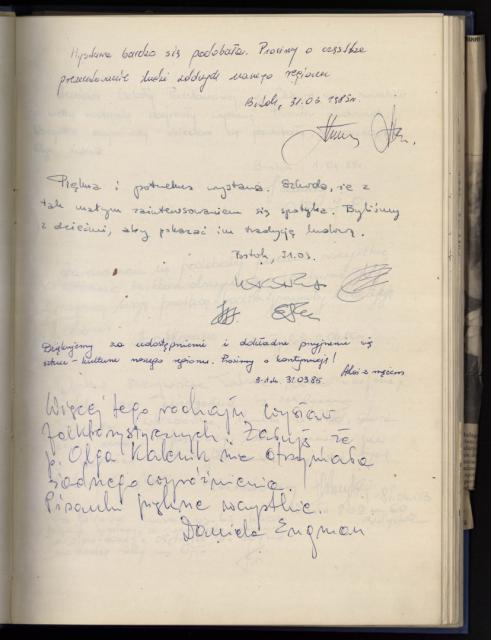 Wystawa bardzo się podobała. Prosimy o częstsze
prezentowanie sztuki naszego regionu
31.03 1985r.
Piękna i potrzebna wystawa. Szkoda, że z
tak małym zainteresowaniem się spotyka. Byliśmy
z dziećmi, aby pokazać im tradycję ludową.
Bstok, 31.03.
Dziękujemy za udostępnienie i dokładne przyjrzenie się
sztuce - kulturze naszego regionu. Prosimy o kontynuację!
z mężem
31.03.85.
Więcej tego rodzaju wystaw
folklorystycznych. Żałuję że
p. Olga nie otrzymała
żadnego wyróżnienia.
Pisanki piękne wszystkie.
Daniela Engman